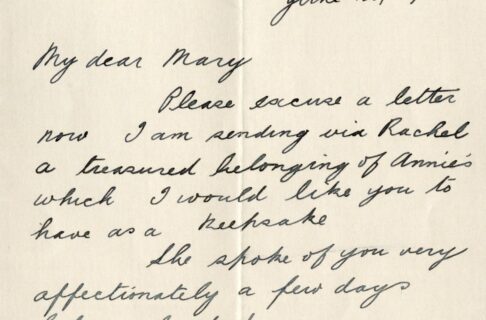 My dear Mary
Please excuse a letter
now I am sending via Rachel
a treasured belonging of Annie's
which I would like you to
have as a keepsake
She spoke of you very
affectionately a few days